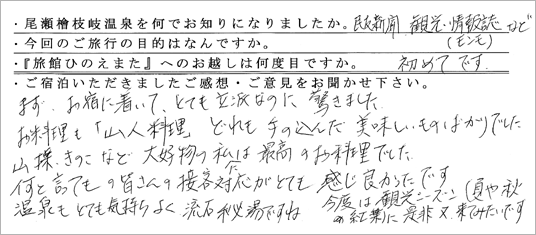 ・尾瀬檜枝岐温泉を何でお知りになりましたか。民友新聞 観光・情報誌など
(モンモ)
・今回のご旅行の目的はなんですか。
・『旅館ひのえまた』へのお越しは何度目ですか。 初めてです。
・ご宿泊いただきましたご感想・ご意見をお聞かせ下さい。
まず、お宿に着いて、とても立派なのに驚きました。
お料理も「山人料理 どれも手の込んだ美味しいものばかりでした
山探、きのこなど大好物の私には最高のお料理でした。
何と言っても皆さんの接客対応がとても感じ良かったです
温泉もとても気持ちよく流石秘湯ですね
今度は観光シーズン(夏や秋
の紅葉)に是非又来てみたいです